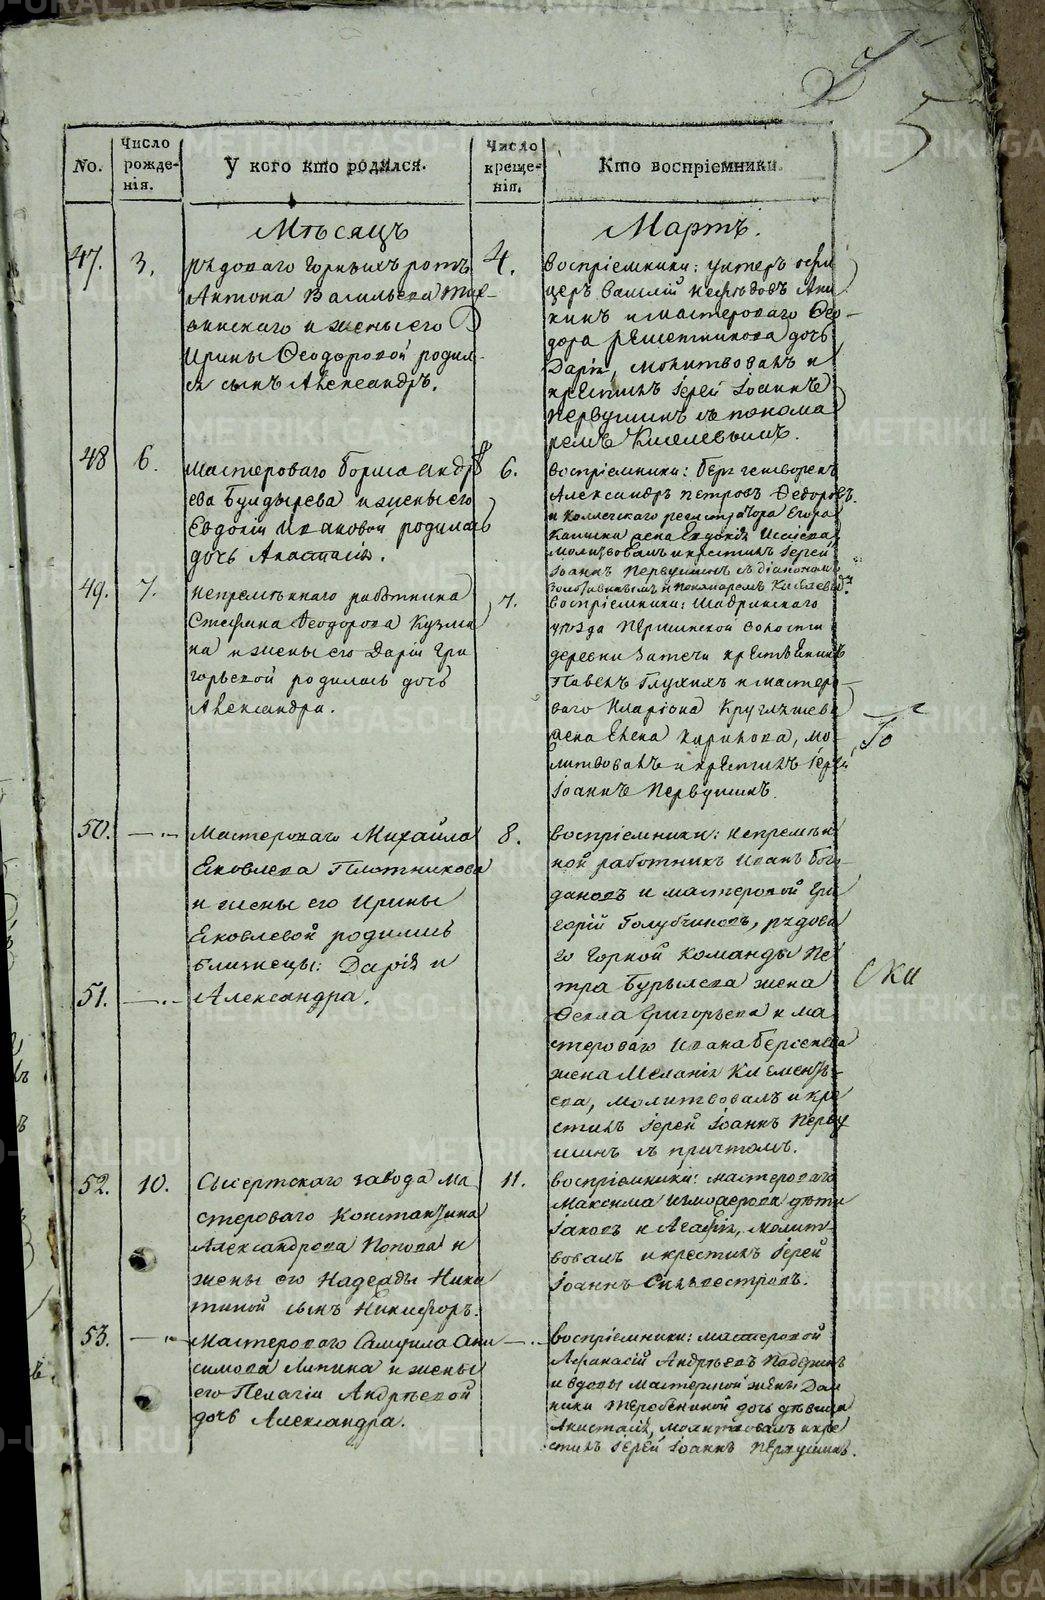 5
No.
Число
рожде-
нія.
У кого кто родился.
Число
креще-
нія.
Кто воспріемники.
Мѣсяцъ
Мартъ.
47.
3.
рядоваго Горныхъ ротъ
Антона Васильева
винскаго и жены его
Ирины Ѳеодоровой родил-
ся сынъ Александръ.
4.
Воспріемники: унтеръ офи
церъ Василій Нефедовъ Ани
кинъ и мастероваго Ѳео-
дора Решетникова дочь
Дарія, молитвовалъ и
крестилъ Іерей Іоаннъ
Первушинъ съ понома
ремъ Киселевымъ.
48
6.
мастероваго Бориса Андрѣ
ева Булдырева и жены его
Евдокіи Ивановой родилась
дочь Анастасія.
6.
воспріемники: Берггешворенъ
Александръ Петровъ Ѳедоровъ.
и Коллежскаго регистратора Егора
жена Евдокія Исаева
молитвовалъ и крестилъ Іерей
Іоаннъ Первушинъ съ діакономъ
и пономаремъ Киселевымъ.
49.
7.
непремѣннаго работника
Стефана Ѳеодорова Кузми
на и жены его Даріи Гри
горьевой родилась дочь
Александра.
7.
воспріемники: Шадринскаго
уѣзда Першинской волости
деревни Затечи крестьянинъ
Павелъ Глухихъ и мастеро-
ваго Иларіона Круглашева
жена Елена Карпова, мо-
литвовалъ и крестилъ Іерей
Іоаннъ Первушинъ.
Го
50.
Мастероваго Михайла
Яковлева Плотникова
и жены его Ирины
Яковлевой родились
близнецы: Дарія и
51.
Александра.
8.
воспріемники: непремѣн
ной работникъ Иванъ Бог-
дановъ и мастеровой Гри
горій Голубчиковъ, рядова
го Горной команды Пе
тра Бурылова жена
Ѳекла Григорьева и ма
стероваго Ивана Берсенева
жена Меланія Клементь-
ева, молитвовалъ и кре
стилъ Іерей Іоаннъ Перву
шинъ съ причтомъ.
ски
52.
10.
Сысертскаго завода ма
стероваго Константина
Александрова Попова и
жены его Надежды Ники
тиной сынъ Никифоръ.
11.
воспріемники: мастероваго
Максима дѣти
Іаковъ и Агафія, молит-
вовалъ и крестилъ Іерей
Іоаннъ Сильвестровъ.
53.
Мастероваго Самуила Ани
симова Липина и жены
его Пелагіи Андрѣевой
дочь Александра.
воспріемники: мастеровой
Афанасій Андрѣевъ
и вдовы мастерской жены Дом
ники Теребениной дочь дѣвица
Анастасія, молитвовалъ и кре
стилъ Іерей Іоаннъ Первушинъ.